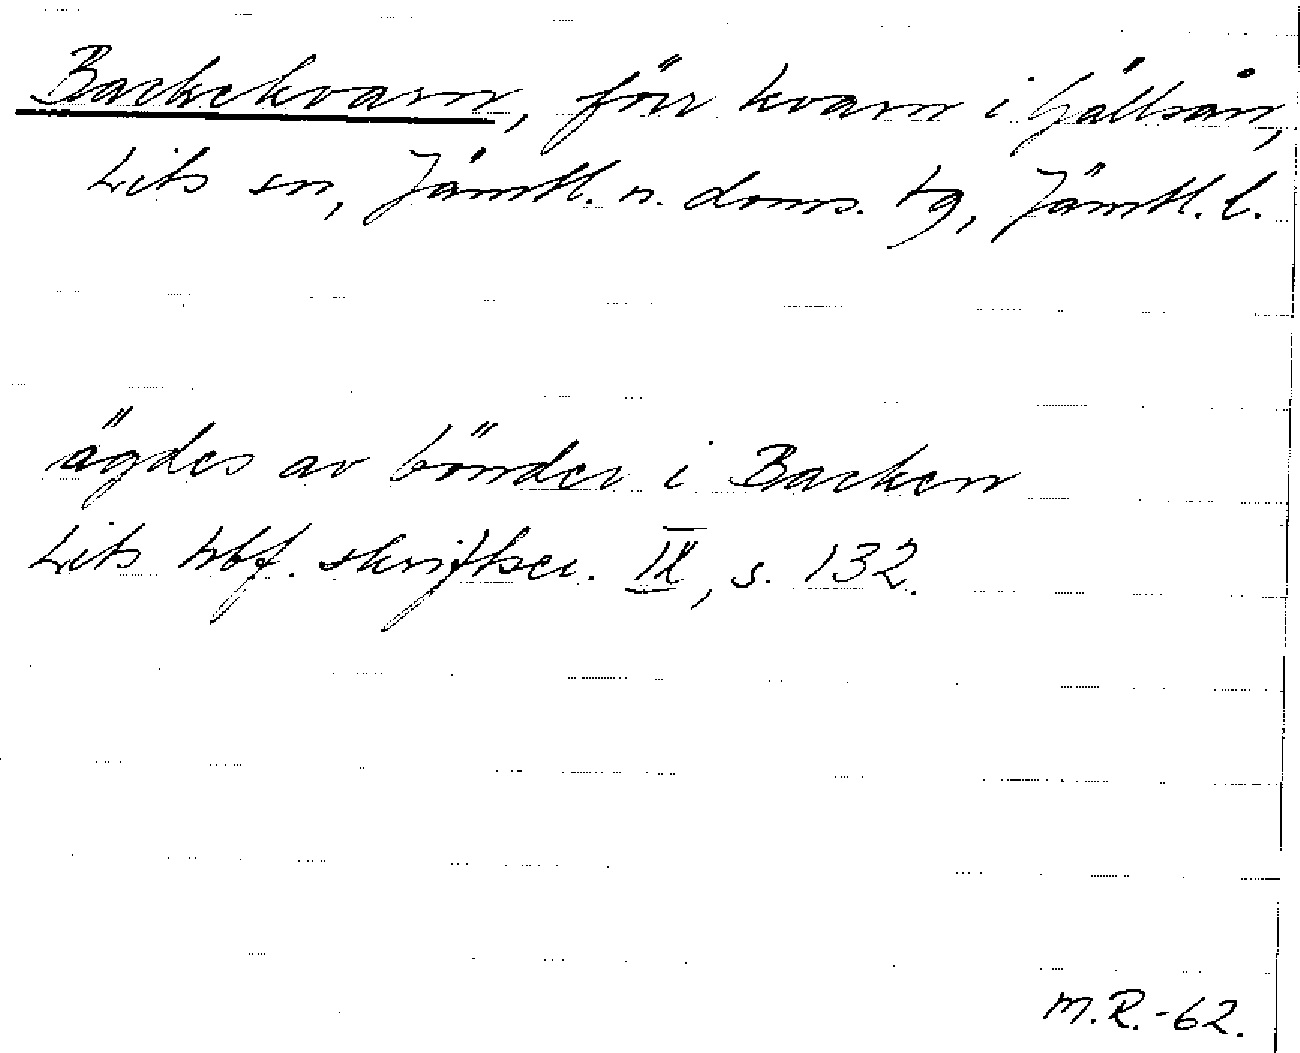 Backekvarn, förr kvarn i Hällsån,
Lits sn, Jämtl. n. doms. tg, Jämtl. l.
ägdes av bönder i Backen
Lits hbf. skriftser. IX, s. 132.
M.R.-62.